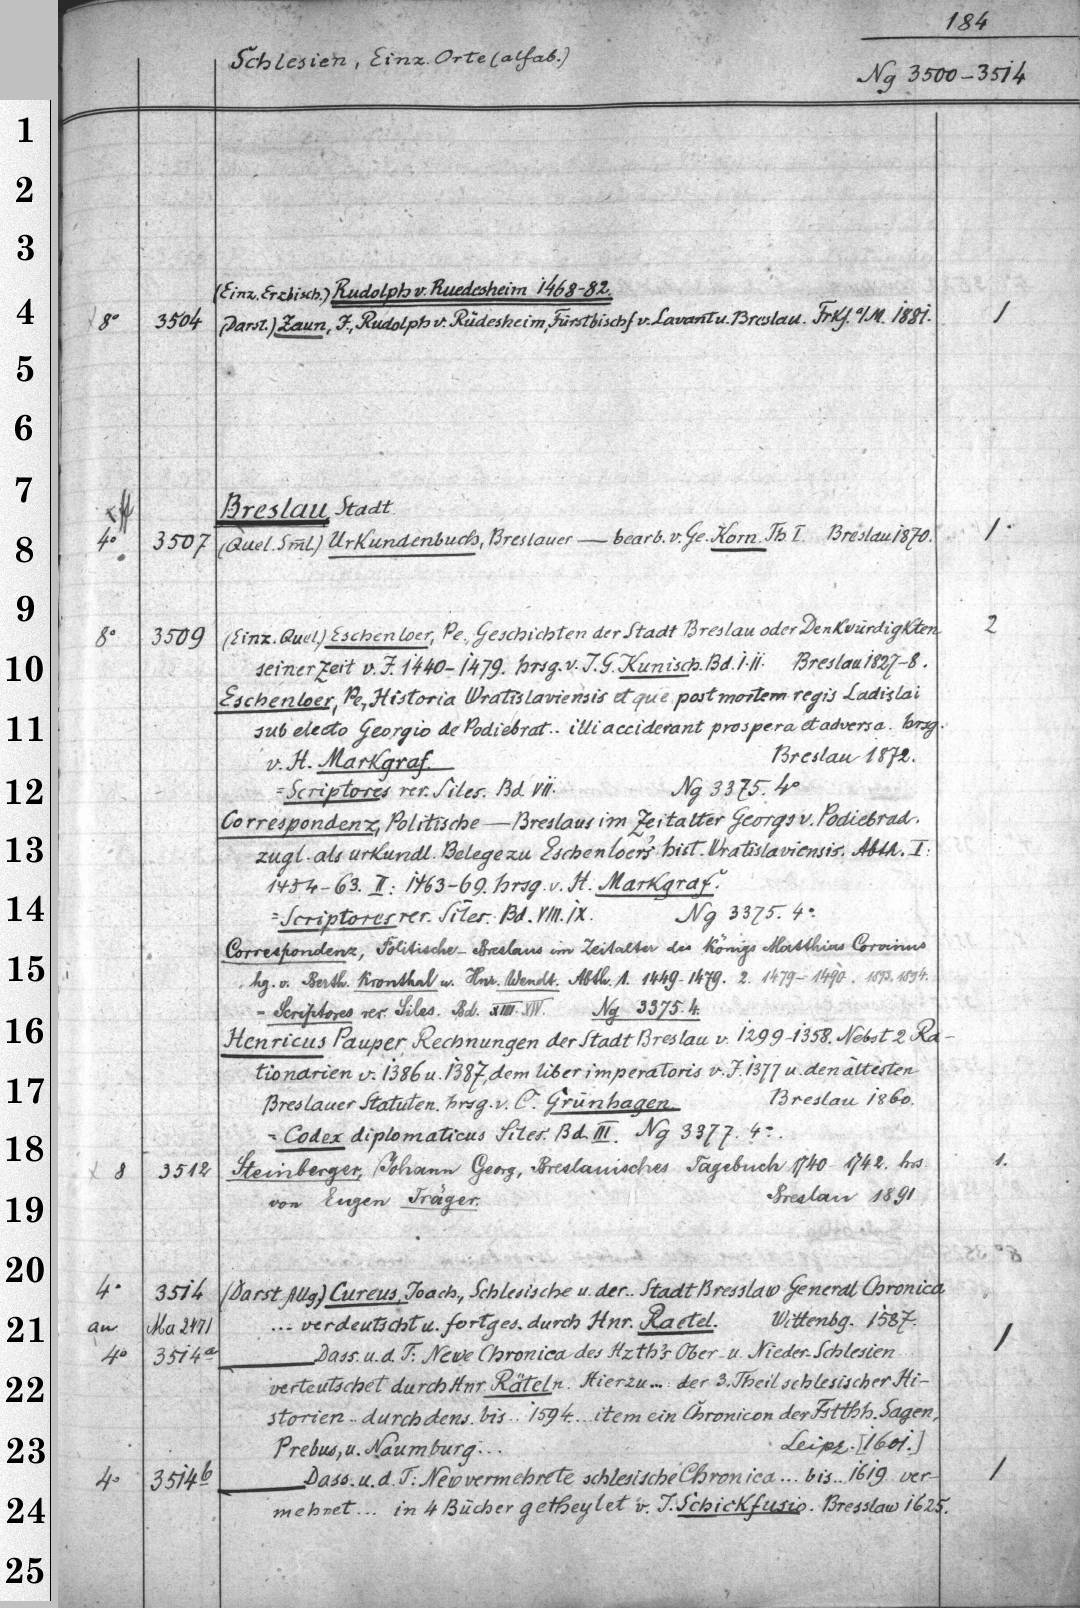 184
Schlesien, Einz. Orte (alfab.)
Ng 3500–3514
1
2
3
(Einz. Erzbisch.) Rudolph v. Ruedesheim 1468-82.
4 8° 3504 (Darst.) Zaun, J., Rudolph v. Rüdesheim, Fürstbischf v. Lavant u. Breslau. Frkf. a/M. 1881. 1
5
6
7
Breslau Stadt
8 4° 3507 (Quel. Sml.) Urkundenbuch, Breslauer — bearb. v. Ge. Korn. Th I. Breslau 1870. 1.
9
8° 3509 (Einz. Quel.) Eschenloer, Pe, Geschichten der Stadt Breslau oder Denkwürdigkten 2
10 seiner Zeit v. J. 1440–1479. hrsg. v. J. G. Kunisch. Bd. I-II. Breslau 1827-8.
Eschenloer, Pe, Historia Wratislaviensis et que post mortem regis Ladislai
11 sub electo Georgio de Podiebrat .. illi acciderant prospera et adversa. hrsg.
v. H. Markgraf. Breslau 1872.
12 = Scriptores rer. Siles. Bd VII. Ng 3375. 4°
Correspondenz, Politische — Breslaus im Zeitalter Georgs v. Podiebrad.
13 zugl. als urkundl. Belege zu Eschenloer's hist. Wratislaviensis. Abth. I:
1454–63. II: 1463–69. hrsg. v. H. Markgraf.
14 = Scriptores rer. Siles. Bd. VIII. IX. Ng 3375. 4°.
Correspondenz, Politische – Breslaus im Zeitalter des Königs Matthias Corvinus
15 hg. v. Berth. Kronthal u. Hnr. Wendt. Abth. 1. 1449-1479. 2. 1479–1490. 1893. 1894.
= Scriptores rer. Siles. Bd. XIII. XIV. Ng 3375. 4.
16 Henricus Pauper Rechnungen der Stadt Breslau v. 1299-1358. Nebst 2 Ra-
tionarien v. 1386 u. 1387, dem liber imperatoris v. J. 1377 u. den ältesten
17 Breslauer Statuten. hrsg. v. C. Grünhagen Breslau 1860.
18 = Codex diplomaticus Siles. Bd. III. Ng 3377. 4°.
8 3512 Steinberger, Johann Georg, Breslauisches Tagebuch 1740–1742. hrs 1.
19 von Eugen Träger. Breslau 1891
20
4° 3514 (Darst. Allg.) Cureus, Joach., Schlesische u. der.. Stadt Bresslaw General Chronica
21 an Ma 2471 ... verdeutscht u. fortges. durch Hnr. Raetel. Wittenbg. 1587. 1
4° 3514a ____ Dass. u. d. T: Newe Chronica des Hzth's Ober- u. Nieder Schlesien
22 verteutschet durch Hnr Räteln. Hierzu ... der 3. Theil schlesischer Hi-
storien .. durch dens. bis .. 1594 ... item ein Chronicon der Fstthh. Sagen,
23 Prebus, u. Naumburg ... Leipz. [1601.]
4° 3514b ____ Dass. u. d. T: New vermehrete schlesische Chronica ... bis .. 1619 ver- 1
24 mehret ... in 4 Bücher getheylet v. J. Schickfusio. Bresslaw 1625.
25